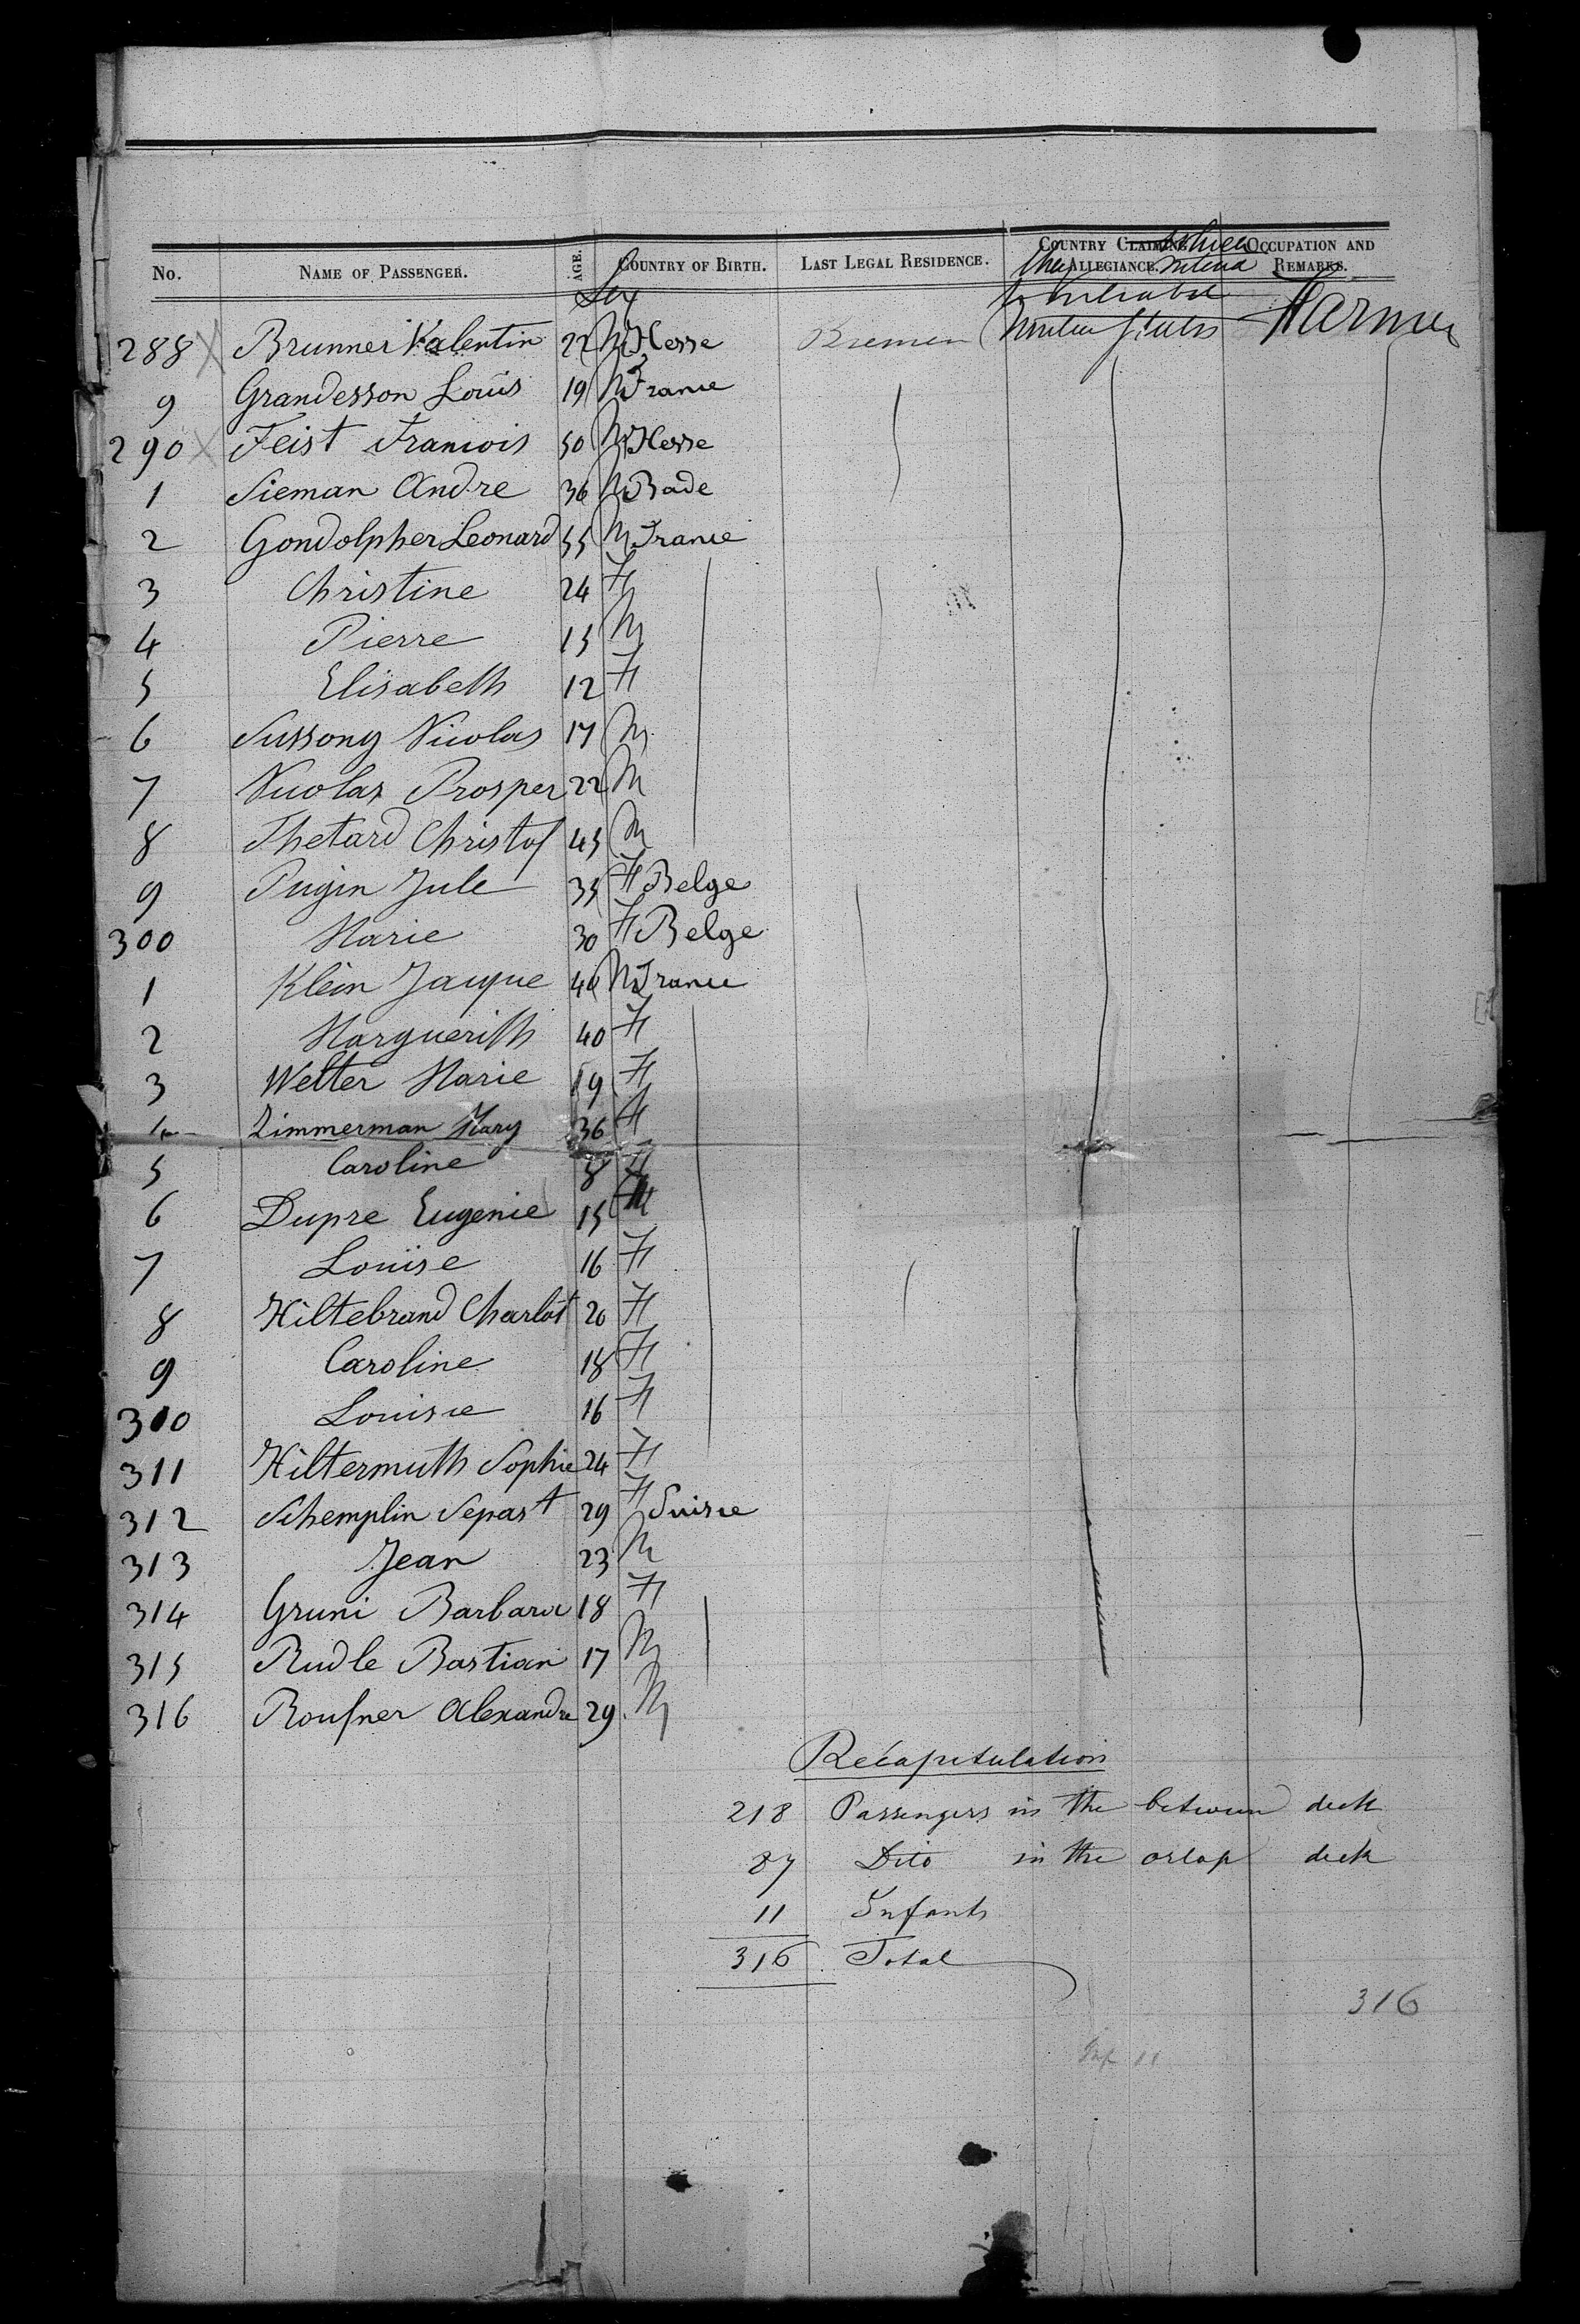 No. NAME OF PASSENGER. AGE. Sex COUNTRY OF BIRTH. LAST LEGAL RESIDENCE. COUNTRY CLAIMING ALLEGIANCE. OCCUPATION AND REMARKS.
to inhabit
288 X Brunner Valentin 22 M Hesse Bremen United States Farmer
9 Grandesson Louis 19 M France
290 X Feist Francois 50 M Hesse
1 Sieman Andre 36 M Bade
2 Gondolpher Leonard 55 M France
3 Christine 24 F
4 Pierre 15 M
5 Elisabeth 12 F
6 Sussong Nicolas 17 M
7 Nicolas Prosper 22 M
8 Thetard Christof 45 M
9 Pugin Jule 35 F Belge
300 Marie 30 F Belge
1 Klein Jacque 40 M France
2 Marguerith 40 F
3 Welter Marie 19 F
4 Zimmerman Mary 36 F
5 Caroline 8 F
6 Dupre Eugenie 15
7 Louise 16 F
8 Hiltebrand Charlot 20 F
9 Caroline 18 F
310 Louise 16 F
311 Hiltermuth Sophie 24 F
312 Schemplin Sepast 29 F Suisse
313 Jean 23 M
314 Gruni Barbara 18 F
315 Rudle Bastian 17 M
316 Roufner Alexandre 29 M
Récapitulation
218 Passengers in the between deck
87 Dito in the orlop deck
11 Infants
316 Total
316
Inf 11